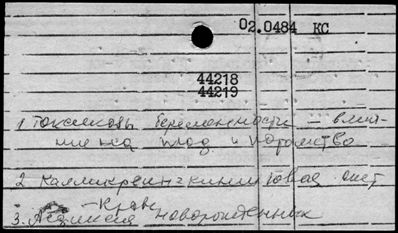 02.0484 КС
44218
44219
1 Токсикозы беременности – влия-
ние на плод и потомство
2 Калликреин-кининовая сист
- Кровь
3. Асфиксия новорожденных